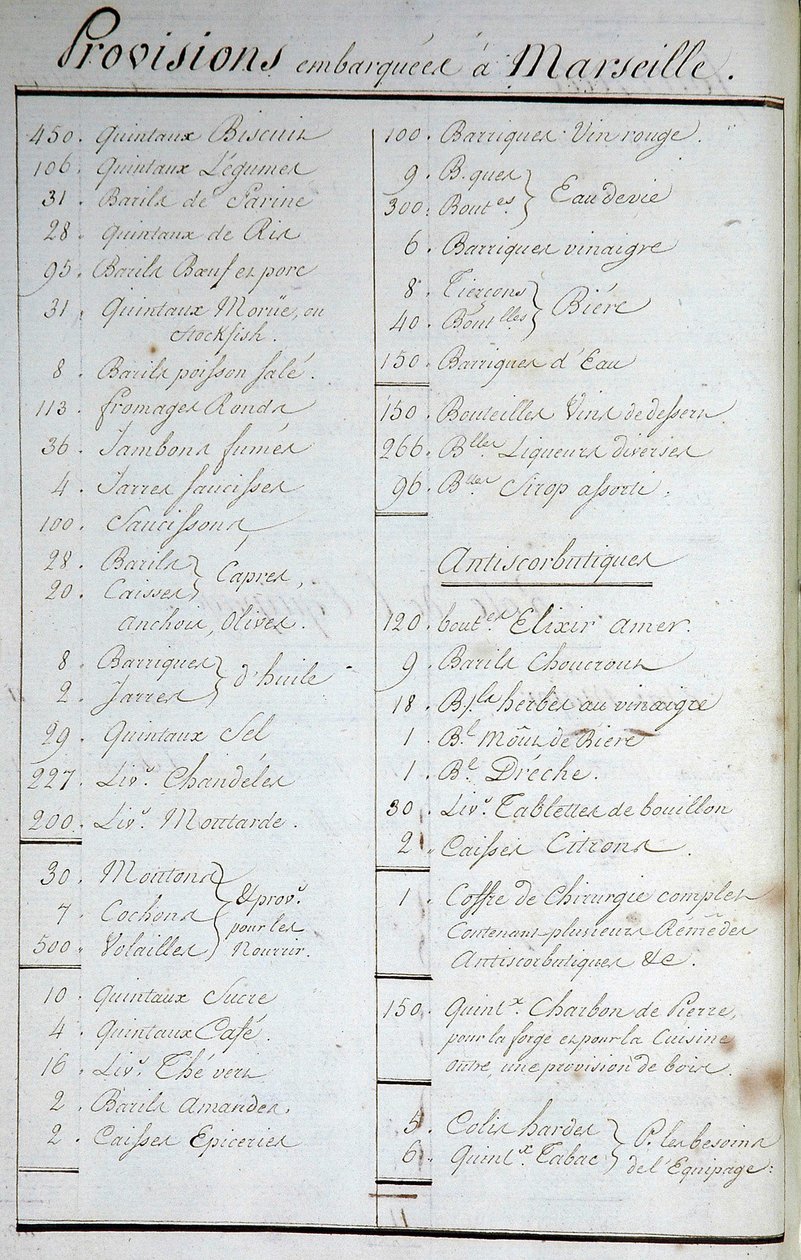 Provisions embarquées à Marseille.
450. Quintaux Biscuit
106. Quintaux Légumes
31. Barils de Farine
28. Quintaux de Ris
95. Barils Bœuf et porc
31. Quintaux Moruë, ou
Stockfish.
8. Barils poisson salé.
113. fromages Ronds
36. Jambons fumés
4. Jarres saucisses
100. Saucissons
28. Barils
20. Caisses
Câpres,
anchois, Olives.
8. Barriques
2. Jarres
d'huile
29. Quintaux Sel
227. Livs. Chandéles
200. Livs. Moutarde.
30. Moutons
7. Cochons
500. Volailles
& provs.
pour les
Nourrir.
10. Quintaux Sucre
4. Quintaux Café.
16. Livs. Thé vert
2. Barils amandes.
2. Caisses Epiceries
100. Barriques Vin rouge.
9. B.ques
300. Boutes.
Eau de vie
6. Barriques vinaigre
8. Tierçons
40. Boutlles
Biére
150. Barriques d'Eau
150. Bouteilles Vins de dessert.
266. Blles. Liqueurs diverses
96. Blles. Sirop assorti.
Antiscorbutiques
120. boutes. Elixir amer.
9. Barils Choucrout
18. B/.ls herbes au vinaigre
1. Bl. Moût de Biere
1. Bl. Drêche.
30. Livs. Tablettes de bouillon
2. Caisses Citrons.
1. Coffre de Chirurgie complet
Contenant plusieurs Remêdes
Antiscorbutiques &c.
150. Quintx. Charbon de Pierre,
pour la forge et pour la Cuisine
outre, une provision de bois.
5. Colis hardes
6. Quintx. Tabac
P. les besoins
de l'Equipage: